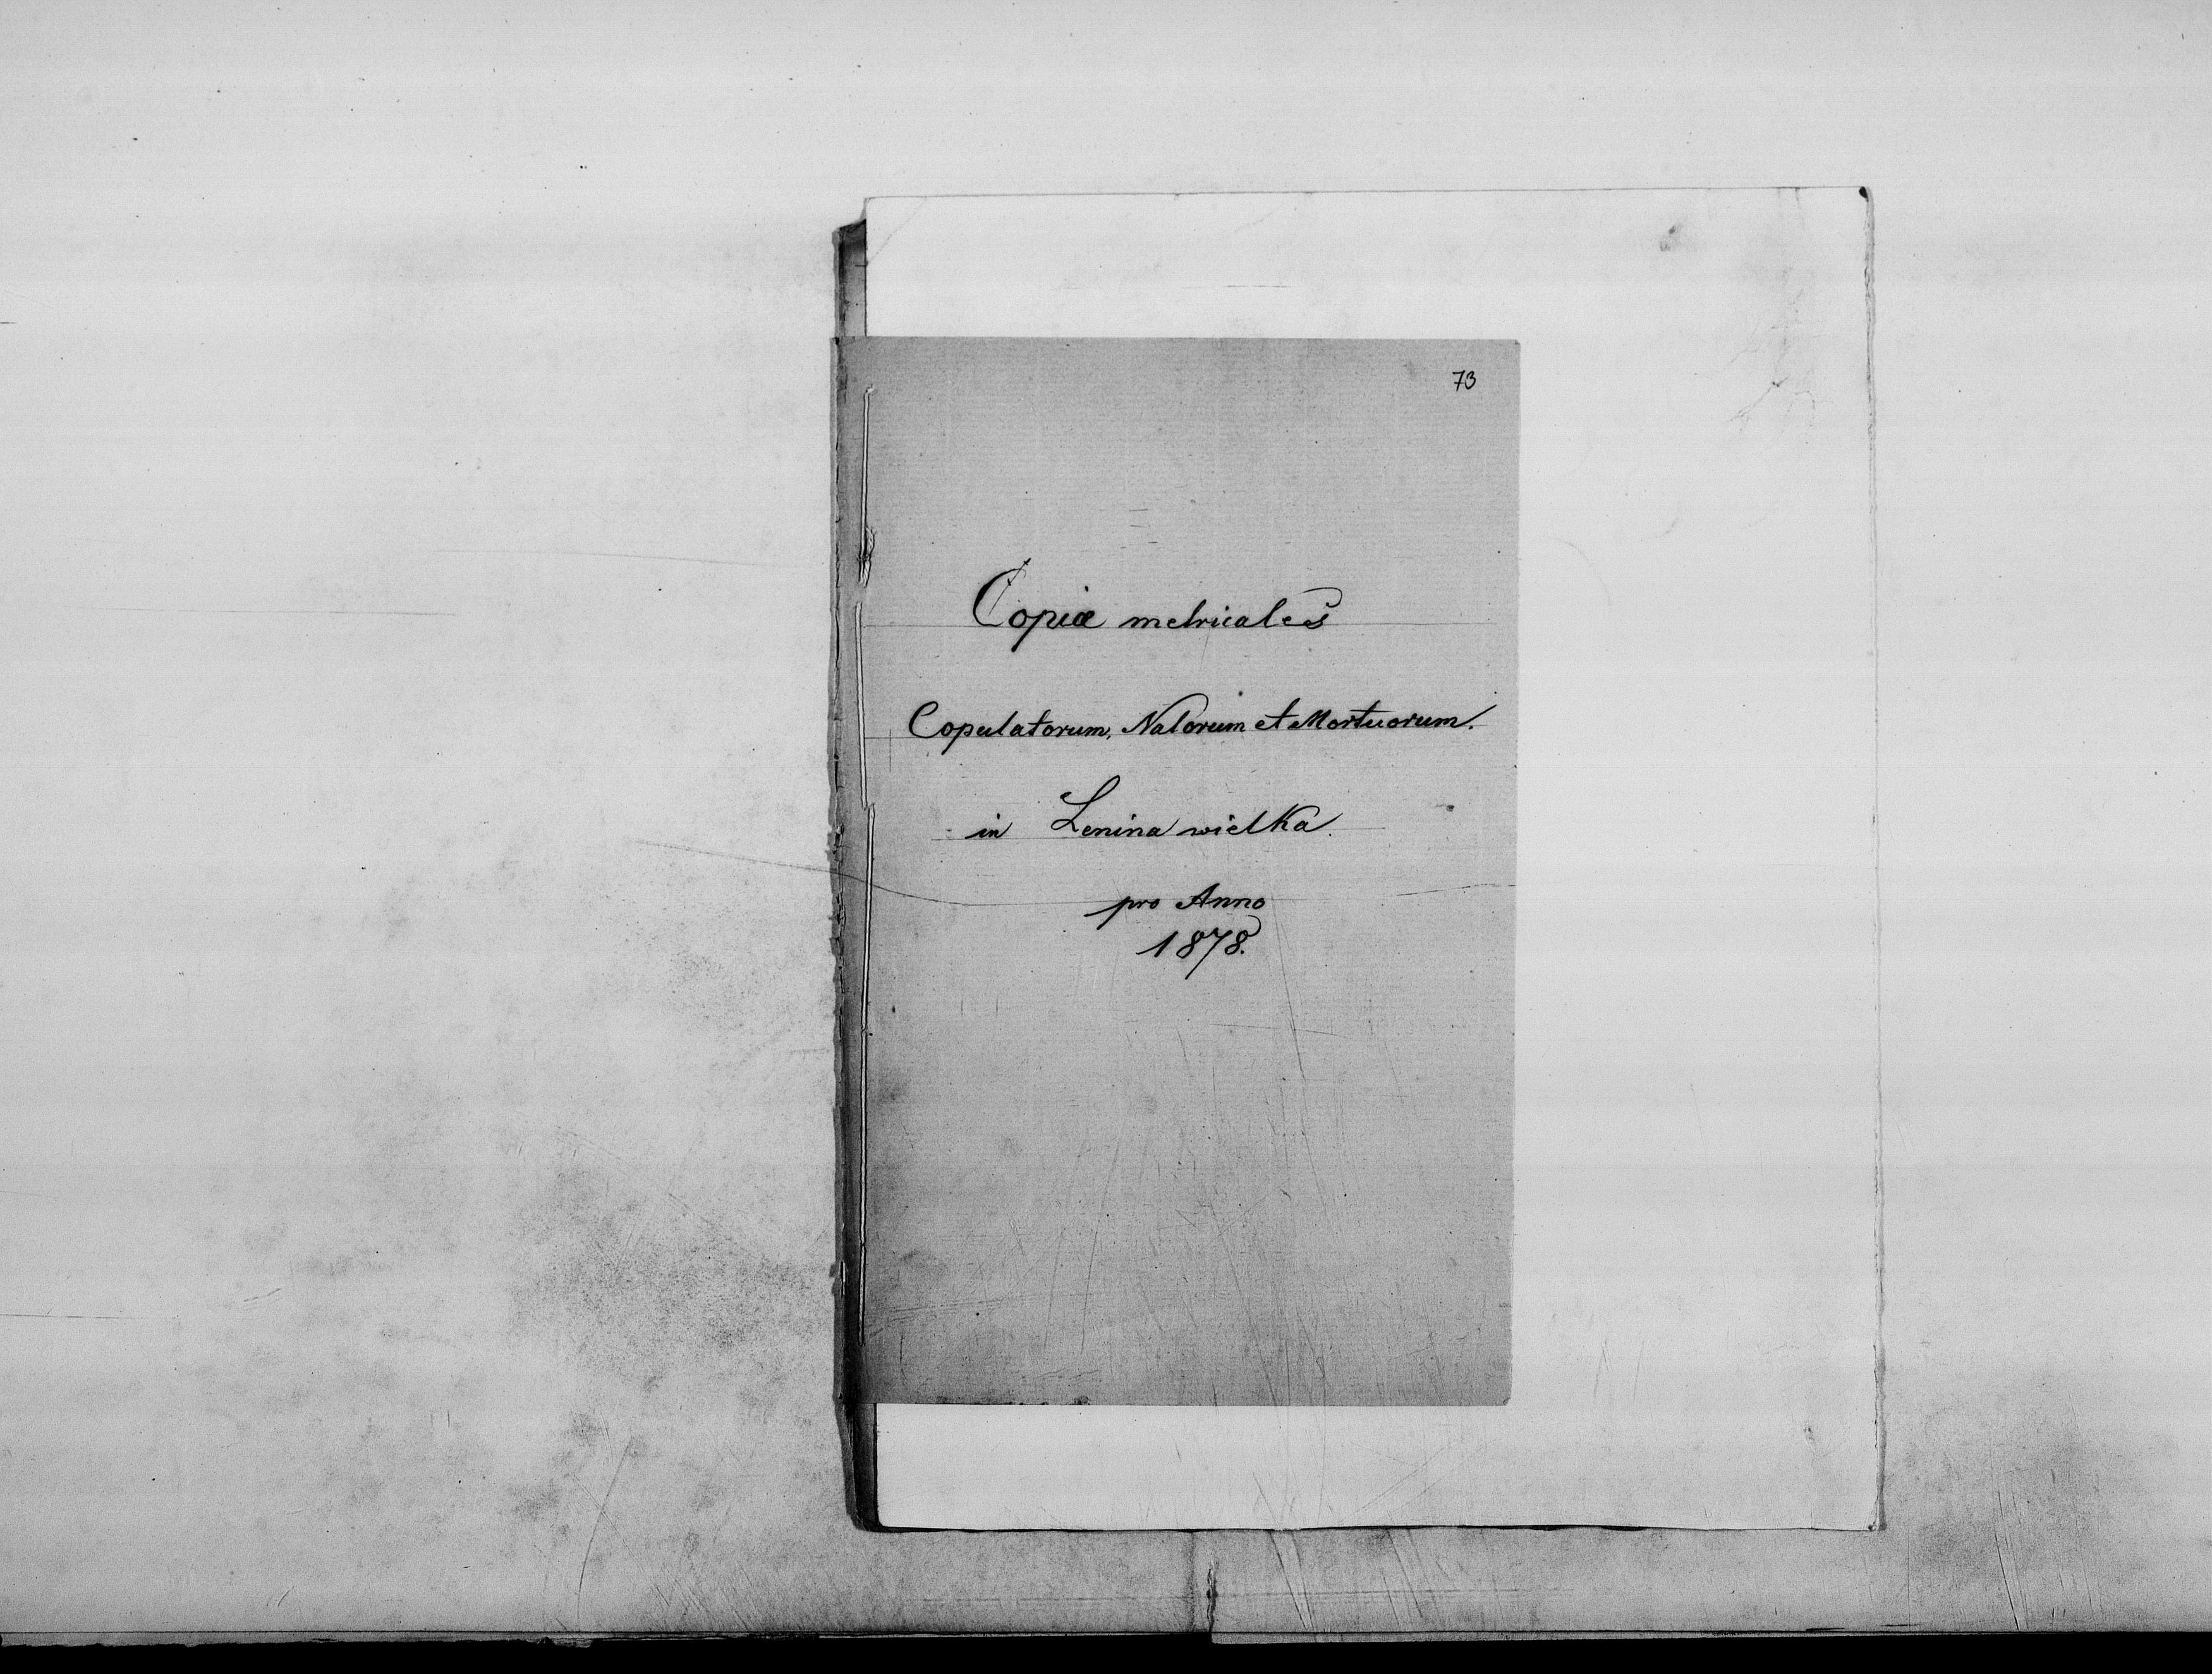 73
Copiæ metricales
Copulatorum, Natorum et Mortuorum.
in Lenina wielka.
pro Anno
1878.